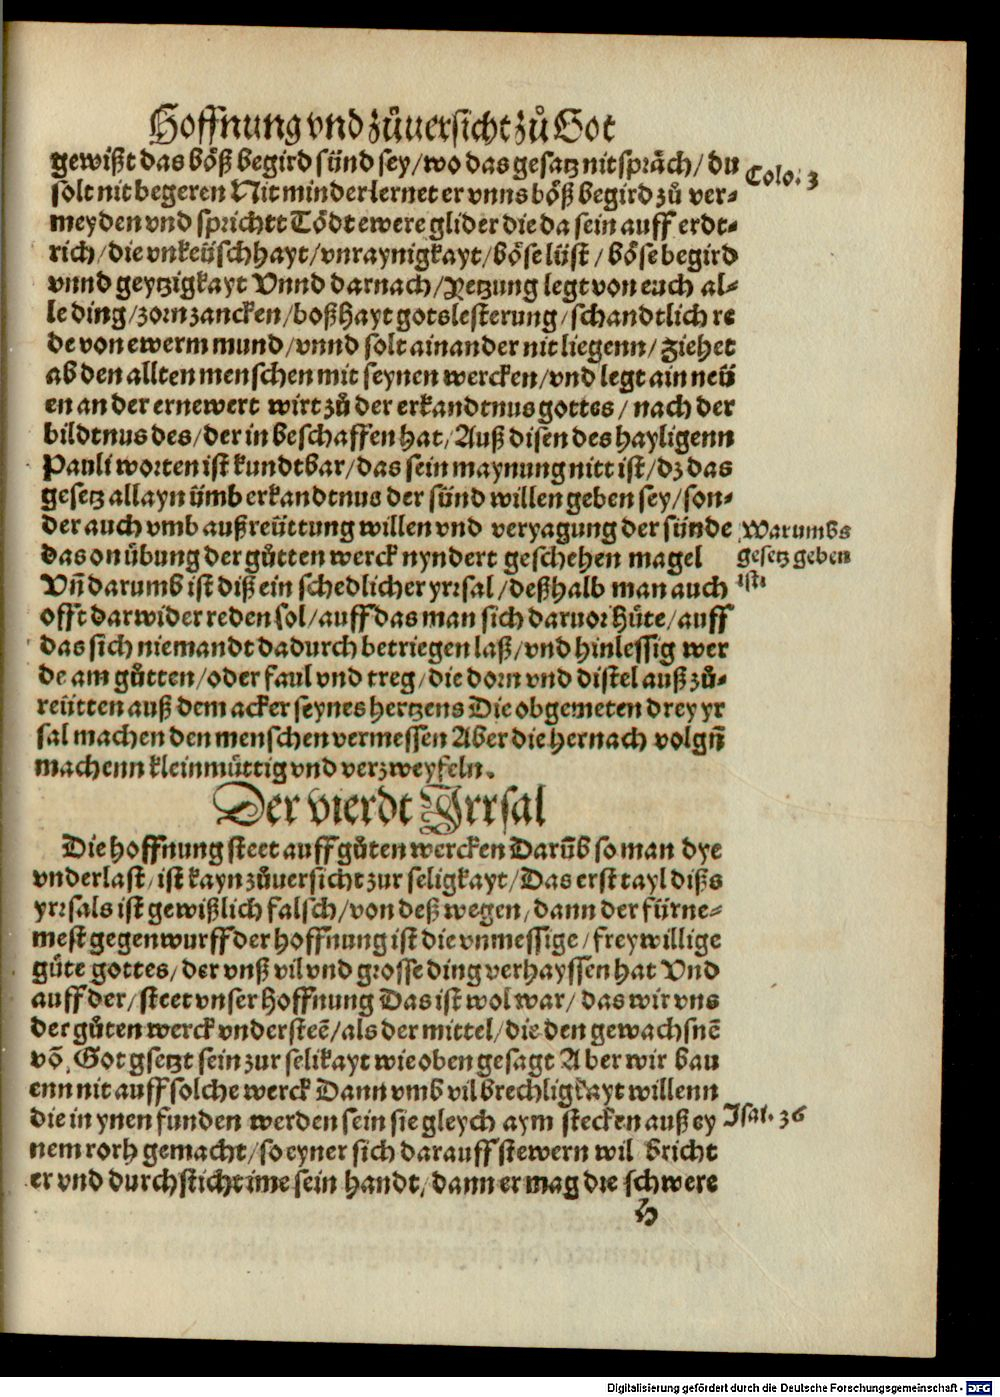 Hoffnung vnd zůuersicht zů Got
gewißt das böß begird sünd sey/wo das gesatz nit spräch/du
solt nit begeren Nit minder lernet er vnns böß begird zů ver-
meyden vnd sprichtt Tödt ewere glider die da sein auff erdt-
rich/die vnkeüschhayt/vnraynigkayt/böse lüst/böse begird
vnnd geytzigkayt Vnnd darnach/Yetzung legt von euch al-
le ding/zorn zancken/boßhayt gotslesterung/schandtlich re
de von ewerm mund/vnnd solt ainander nit liegenn/Ziehet
ab den allten menschen mit seynen wercken/vnd legt ain neü
en an der ernewert wirt zů der erkandtnus gottes/nach der
bildtnus des/der in beschaffen hat/Auß disen des hayligenn
Pauli worten ist kundtbar/das sein maynung nitt ist/dz das
gesetz allayn ümb erkandtnus der sünd willen geben sey/son-
der auch vmb außreüttung willen vnd veryagung der sünde
das on übung der gůtten werck nyndert geschehen mag el
Vn̄ darumb ist diß ein schedlicher yrrsal/deßhalb man auch
offt darwider reden sol/auff das man sich daruor hüte/auff
das sich niemandt dadurch betriegen laß/vnd hinlessig wer
de am gůtten/oder faul vnd treg/die dorn vnd distel auß zů-
reütten auß dem acker seynes hertzens Die obgemeten drey yr
sal machen den menschen vermessen Aber die hernach volgn̄
machenn kleinmüttig vnd verzweyfeln.
Colo. 3
Warumbs
gesetz geben
ist.
Der vierdt Jrrsal
Die hoffnung steet auff gůten wercken Darūb so man dye
vnderlast/ist kayn zůuersicht zur seligkayt/Das erst tayl diß s
yrrsals ist gewißlich falsch/von deß wegen/dann der fürne-
mest gegenwurff der hoffnung ist die vnmessige/freywillige
güte gottes/der vnß vil vnd grosse ding verhayssen hat Vnd
auff der/steet vnser hoffnung Das ist wol war/das wir vns
der gůten werck vndersteē/als der mittel/die den gewachsnē
vō Got gsetzt sein zur selikayt wie oben gesagt Aber wir bau
enn nit auff solche werck Dann vmb vil brechligkayt willenn
die in ynen funden werden sein sie gleych aym stecken auß ey
nem rorh gemacht/so eyner sich darauff stewern wil bricht
er vnd durchsticht ime sein handt/dann er mag die schwere
Isai. 36
H
Digitalisierung gefördert durch die Deutsche Forschungsgemeinschaft - DFG